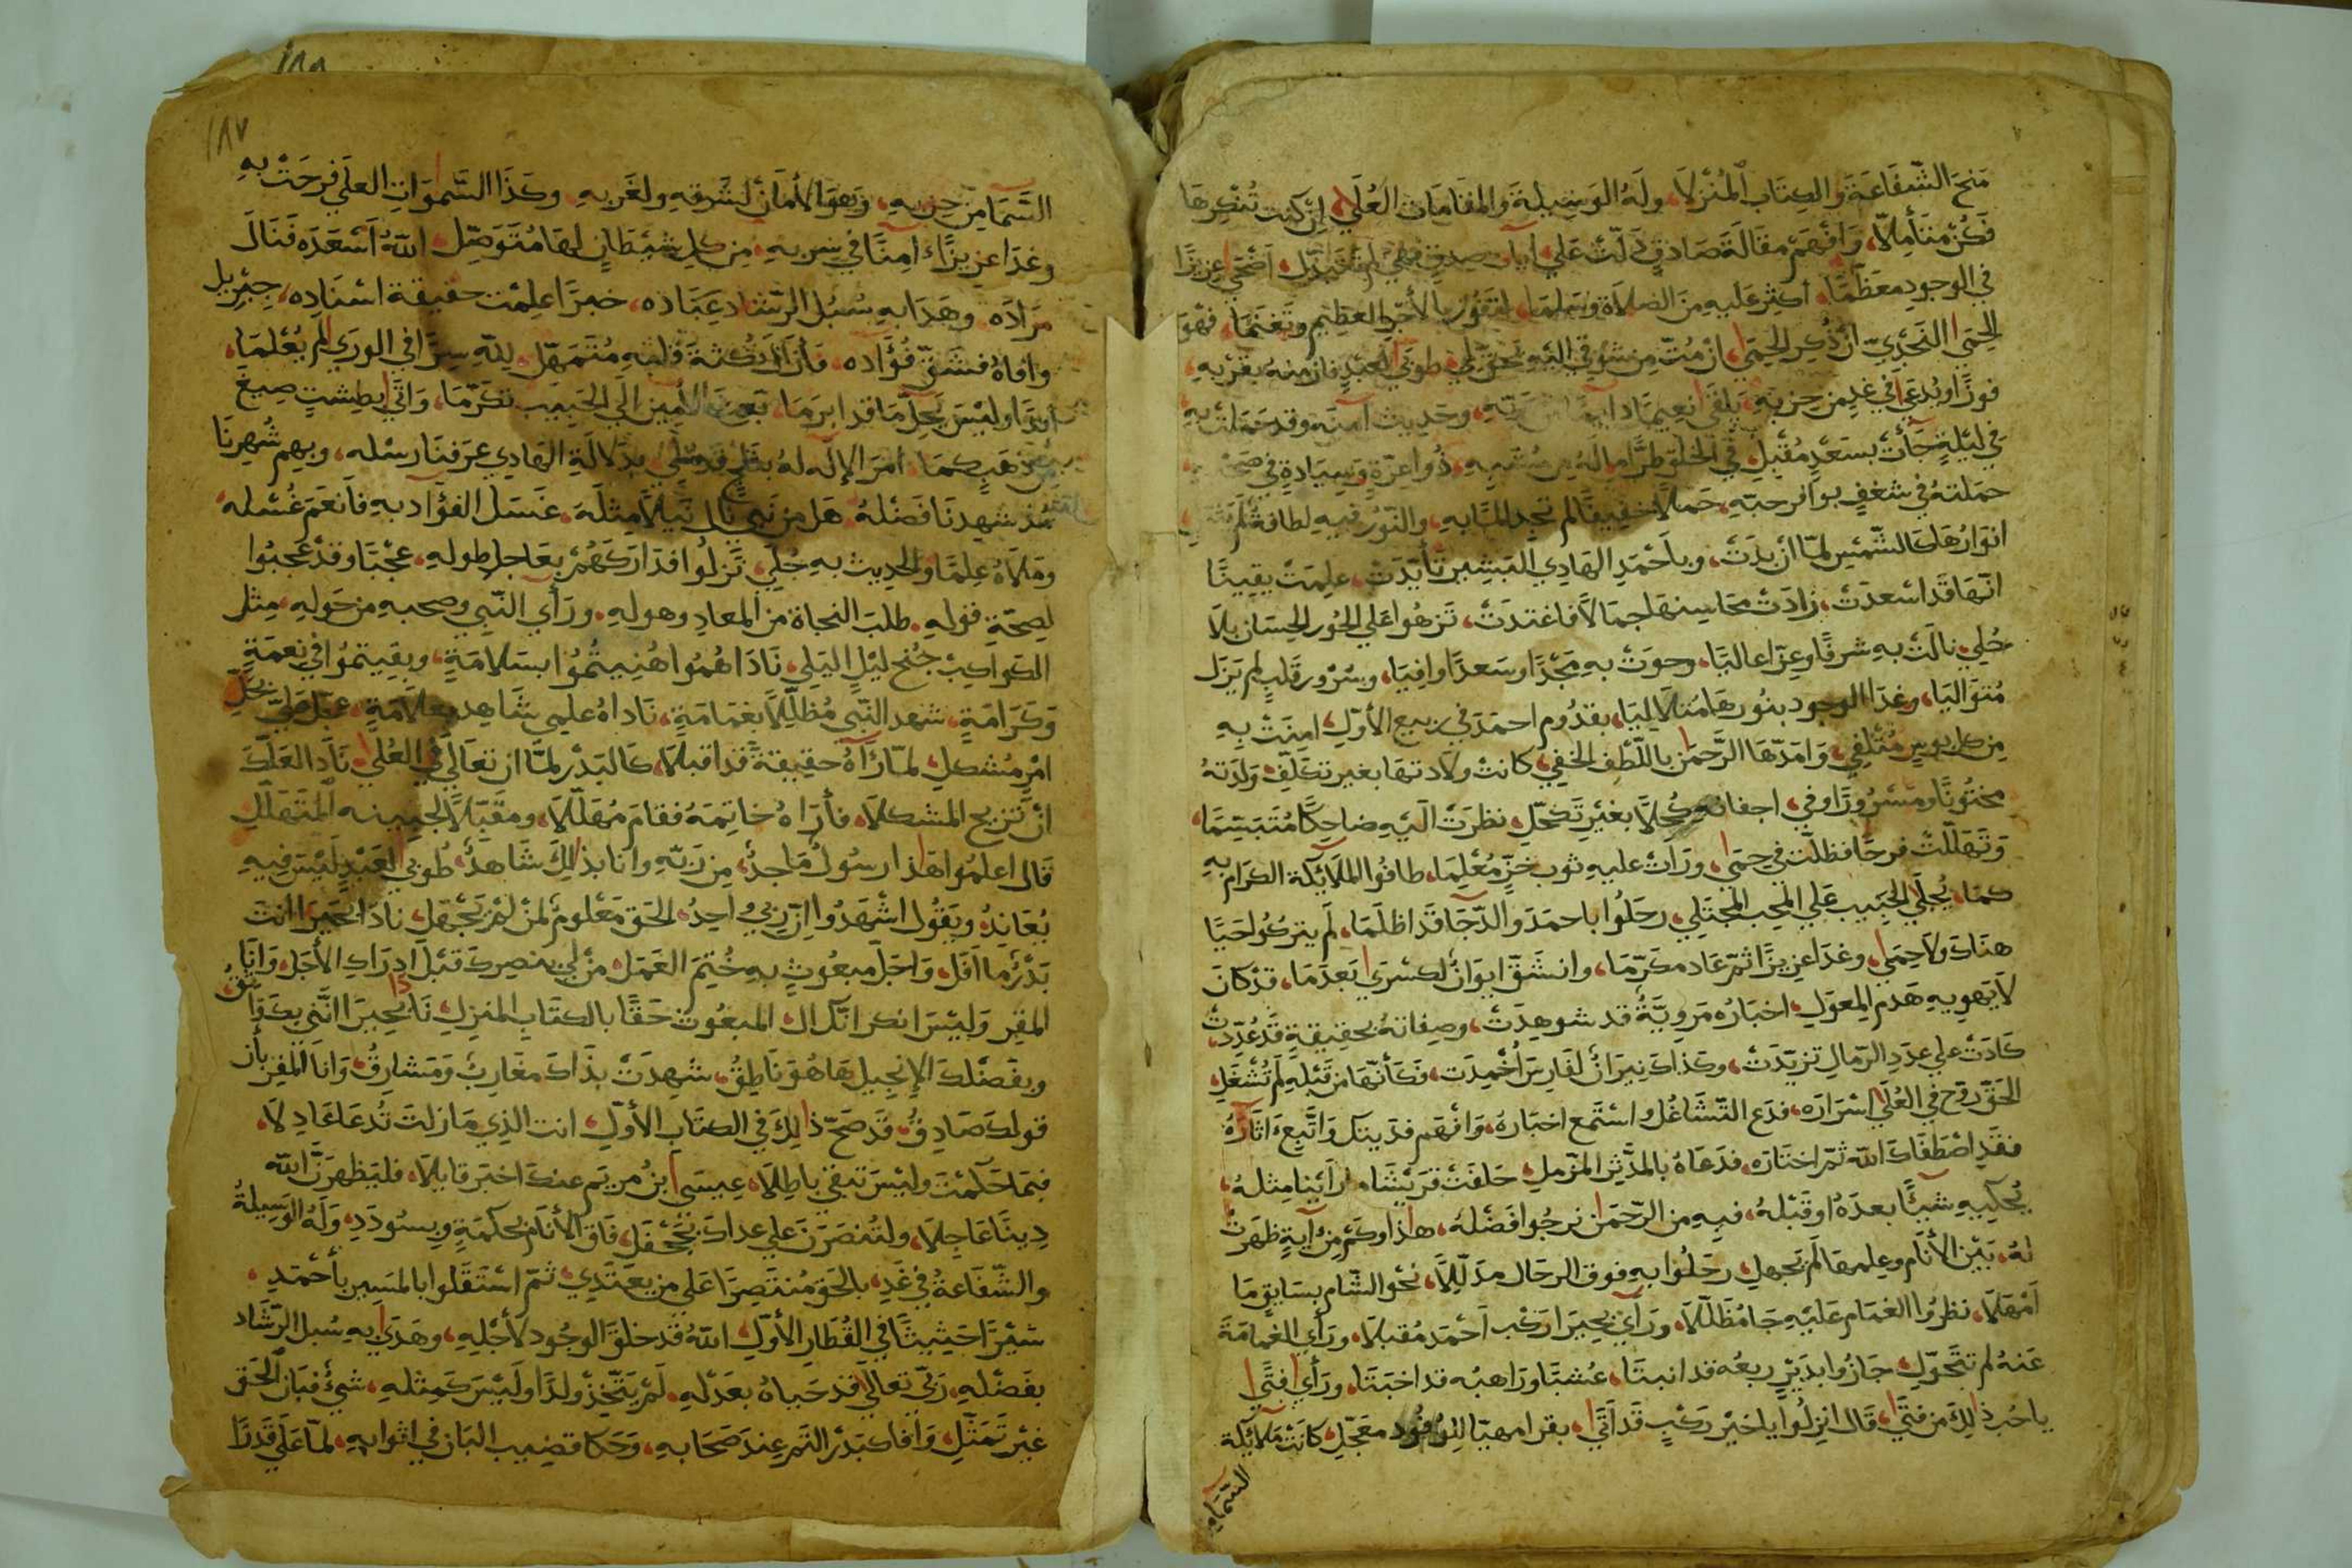 مَنحَ الشَّفَاعَةَ وَالكِتَابَ المُنْزَلَا، ولَهُ الوَسِيلةَ وَالمقَامَات العُلَى، إن كنت تُنكِرهَا
فَكُنْ متَأمِلًا، وَافْهَمْ مقَالَةَ صَادقٍ دَلّتْ عَلى ايات صِدقٍ فهي لم تتَبدّل، اَضحَى عزِيزًا
في الوجودِ معَظّمًا، اكثِر عَليهِ مِنَ الصَلَاةِ وسَلمَا، لتفَوُز بالأجرِ العظِيم وتَغنَمَا، فهْوَ
الحِمَى النَجْدِيّ انْ ذُكِر الحِمَى، انْ مُتّ مِن شَوقي اليهِ فحقّ لي، طوبَى لعَبْدٍ فاز منهُ بقُربهِ،
فوزًا ويُدعَى في غدٍ من حِزبِهِ، يَلقَى نعِيمًا دايمًا من رَبّهِ، وحَدِيث آمنَة وقد حَمَلتْ بهِ
في ليْلةٍ جَأتْ بسَعْدٍ مُقبلِ، في الخلقِ طرًّا مالَهُ من مُشْبِهِ، ذُوا عِزّةٍ وَسِيَادةٍ في
حملتهُ في شغفٍ بوَافر حبّهِ، حَملًا خفِيفًا لم تجدِ المًا بهِ، والنّورُ فيهِ لطافَةً لم
انوَارُهَا كَالشّمْسِ لمّا ان بدَتْ، وبِاَحْمَدِ الهَادِي البَشِيرِ تَأيّدَتْ، علِمَتْ يقِينًا
انّهَا قَد اسْعدَتْ، زادَتْ مَحَاسِنهَا جمَالًا فاغتدَتْ، تَزهُوا عَلى الحُورِ الحِسَان بلَا
حُلي، نالَتْ بهِ شرفًا وعِزًّا عاليًا، وحوَتْ بهِ مَجْدًا وسَعدًا وافِيَا، وسُرُور قَلبٍ لم يَزَل
مُتوَاليَا، وغدَا الوجود بنُورهَا متلَاليَا، بقدُوم احمَدَ في ربيع الأوّلِ، امِنَتْ بهِ
مِن كل بوسٍ مُتْلِفي، وَامَدّهَا الرَّحمَن باللّطفِ الخفِي، كانت ولَادتهَا بغير تكلّفٍ، وَلدَتهُ
مختُونًا ومَسْرُورًا وفي، اجفانهِ كُحلًا بغَيْرِ تَكحّلِ، نظرَتْ الَيهِ ضاحِكًا مُتَبَسِّمَا،
وَتَهَلّلتْ فرحًا فظلّت في حِمَى، ورَاتْ عليهِ ثوب خزٍّ مُعْلِمَا، طافُوا الملَائِكة الكرَام بهِ
كمَا، يُجلَى الحَبِيب عَلى المُحِب المُجتَلِي، رحَلُوا باحمَدَ والدّجَا قَد اظلَمَا، لَم يتركُوا حَيًّا
هنَاكَ ولَا حِمَى، وغدَا عزِيزًا ثمّ عَاد مكَرّمَا، وانشَقّ ايوَانٌ لكسْرَى بَعدَمَا، قدْ كانَ
لَا يَهوِي بهِ هَدم المِعوَلِ، اخبَارُه مَروِيَّةٌ قد شوهِدَتْ، وصِفاتهُ بحَقِيقةٍ قَد عُدّدَتْ،
كَادَتْ عَلى عدَدِ الرّمالِ تزيّدَتْ، وكذَاكَ نِيرَانٌ لفَارِسَ اُخْمِدَت، فكَأنّهَا مِن قَبْلِهِ لَم تُشْعَلِ،
الحَقّ رَوّح في العُلَى اسْرَارَه، فدَع التّشَاغُل واسْتَمع اخبَارُهُ، وَافْهم فدَيتكَ وَاتَّبِعَ اثارُهُ
فقَدِ اصْطَفَاكَ اللّه ثمّ اختَارَه، فدَعَاهُ بالمدّثرِ المزّملِ، حَلفَتْ قرَيْشٌ مَا رَأيْنا مِثلهُ،
يُحكيهِ شَيْئًا بعدَهُ اوقَبْلهُ، فبهِ مِن الرّحمَنِ نرجُوا فَضْلهُ، هذا وكَم مِن آيةٍ ظهرَت
لهُ، بَيْن الأنَام وعِلمهَا لَم تَجهلِ، رحَلُوا بهِ فوق الرحَال مذلّلَا، نحو الشّام بسَابِقٍ مَا
اَمْهَلَا، نظرُوا الغمَام عَليْهِ جَا مُظَلّلَا، ورَأى بحيرَا رَكْب اَحْمَد مُقبِلَا، ورَأى الغمَامَةَ
عَنهُ لم تتَحَوّلِ، جَازُوا بدَيْرٍ ربعُه قد انبتَا، عُشبًا ورَاهبُه قد اخبَتَا، ورَأى فتًى
ياحُب ذلِكَ مِن فتَى، قَال انِزلُوا يا خيْر رَكبٍ قَد اَتَى، بقرا مهيّا للوُفُودِ معَجّلِ، كانَت مَلَائِكة
السّمَاءِ
١٨٨
١٨٧
السَّمَا مِن حِزبهِ، وَهوَ الأمَانُ لشَرقِهِ ولغَربهِ، وكَذَا السَّموَاتِ العلَى فرحَتْ بهِ
وغدَا عزيزًا امِنًا في سِربهِ، مِن كلِ شيْطانٍ لهَا مُتَوَصِّلِ، اللّهُ اَسْعَدَه فَنَالَ
مرَادَه، وهَدَا بهِ سُبُل الرّشَاد عِبَادَه، خبرًا علِمْتَ حقيقة اسْنَادِه، جِبْرِيل
وافاهُ فشَقّ فُؤَادَه، فَأزَالَ نُكْثَةَ قلبهِ مُتَمَهّلِ، للّهِ سِرًّا في الورَى لم يُعْلمَا،
ابدًا وليْسَ يَحِلّ مَا قد ابرَمَا، بَعثَ الأمِين الَى الحَبيب تكَرّمَا، وَاتَى بطِشتٍ صِيغَ
مِن ذهَبٍ كمَا، امَرَ الإلَه لهُ بثلجٍ قد مُلي، بدلَالَةِ الهَادِي عَرفنَا رسْلهِ، وبهِم شُهِرنَا
مُذ شهِدنَا فَضْلهُ، هَل مِن نَبِي نَال نَيلًا مِثلَهَ، غَسَل الفؤَاد بهِ فاَنعَمَ غُسْلهُ،
ومَلَاهُ عِلمًا والحدِيث بهِ حُلَى، نَزلُوا فدَارَكَهُمْ بعَاجل طَولهِ، عَجَبًا وقَدْ عَجبُوا
لِصِحّةِ قولهِ، طلبَ النجاة من المعادِ وهولهِ، ورَأى النَّبي وصحبهِ مِن حَولهِ، مِثل
الكوَاكِبْ جُنح ليْلٍ اليَلِ، نَادَاهُمُوا هُنِيتُمُوا بسَلَامَةٍ، وبقِيتمُوا في نعمَةٍ
وَكرَامَةٍ، شهِد النّبي مُظلّلًا بغمَامَةٍ، نَادَاهُ علمِي شَاهِدٍ بعلَامَةٍ، عَجّل عَليّ بحَلِّ
امْرٍ مُشكلِ، لمّا رَآهُ حقِيقَةً قد اقبلَا، كَالبَدْر لمّا ان تعَالَى في العُلَى، نَادَا لعَلّكَ
انْ تزيح المشكلَا، فأرَاهُ خاتِمَهُ فقامَ مُهلّلًا، ومقَبّلًا لجَبِينهِ المتَهلّلِ،
قَال اعلمُوا هَذا رسُولٌ مَاجدُ، مِن رَبّهِ وانا بذلِكَ شَاهدُ، طُوبى لعَبْدٍ ليْسَ فيهِ
يُعَاندُ، ويَقُول اشْهَدُوا انّ رَبي وَاحِدُ، الحَق مَعْلومٌ لمَنْ لَم يَجْهَلِ، نادَا بحيرَا انتَ
بَدْرٌ ما اَفَل، وَاجَل مبعُوثٍ بهِ خُتِمَ العَمَل، مَن لي بنصِركَ قبْلَ ادرَاكِ الأجَل، وَانَا
المقِر وَليْسَ انكر انكَ ال، المبعُوث حَقًّا بالكتَابِ المنزلِ، نادَا بحِيرَا انَّني بكَ وَاثقُ
وبفَضْلكَ الإنجِيل هَا هُوَ نَاطِقُ، شهِدَتْ بذَاكَ مغَارِبٌ وَمَشَارِقُ، وَانَا المقِر بأن
قولكَ صَادِقُ، قَد صَحّ ذلِكَ في الكتَاب الأوّلِ، انت الذِي مَا زلتَ تُدعَا عَادِلَا،
فيمَا حَكمْتَ وليْسَ تبقي باطِلَا، عِيسَى ابنُ مريَم عنكَ اخبَر قايلَا، فليَظهرَنّ اللّه
دِينًا عَاجِلَا، ولتُنصَرَنّ عَلى عدَاكَ بجَحْفَلِ، فَاق الأنَام بحكمَةٍ وبِسُودَدِ، وَلهُ الوَسِيلةُ
والشّفَاعةُ في غَدِ، بالحَقِ مُنتَصِرًا عَلى مِن يعتَدِي، ثمّ اسْتَقَلوا بالمَسِير بأحْمَدِ،
سَيْرًا حَثِيثًا في القُطَارِ الأوّلِ، اللّهُ قد خلقَ الوجُود لأجْلِهِ، وهَدَى بهِ سُبل الرّشَاد
بفَضْلهِ، رَبي تعالَى قد حَباهُ بعَدْلهِ، لَمْ يَتّخِذْ ولدًا ولَيْسَ كَمِثلهِ، شيْءٌ فبَان الحَق
غَيْر تَمَثّلِ، وَافَا كبَدْرِ التّم عِندَ صَحَابهِ، وَحَكَا قضيب البَان في اثوَابهِ، لمّا عَلَى قَدرًا